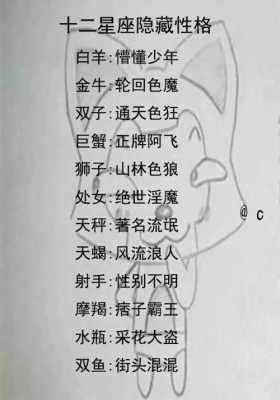 十二星座隐藏性格
白羊:懵懂少年
金牛:轮回色魔
双子:通天色狂
巨蟹:正牌阿飞
狮子:山林色狼
处女:绝世淫魔
天秤:著名流氓
@ c
天蝎:风流浪人
射手:性别不明
摩羯:痞子霸王
水瓶:采花大盗
双鱼:街头混混